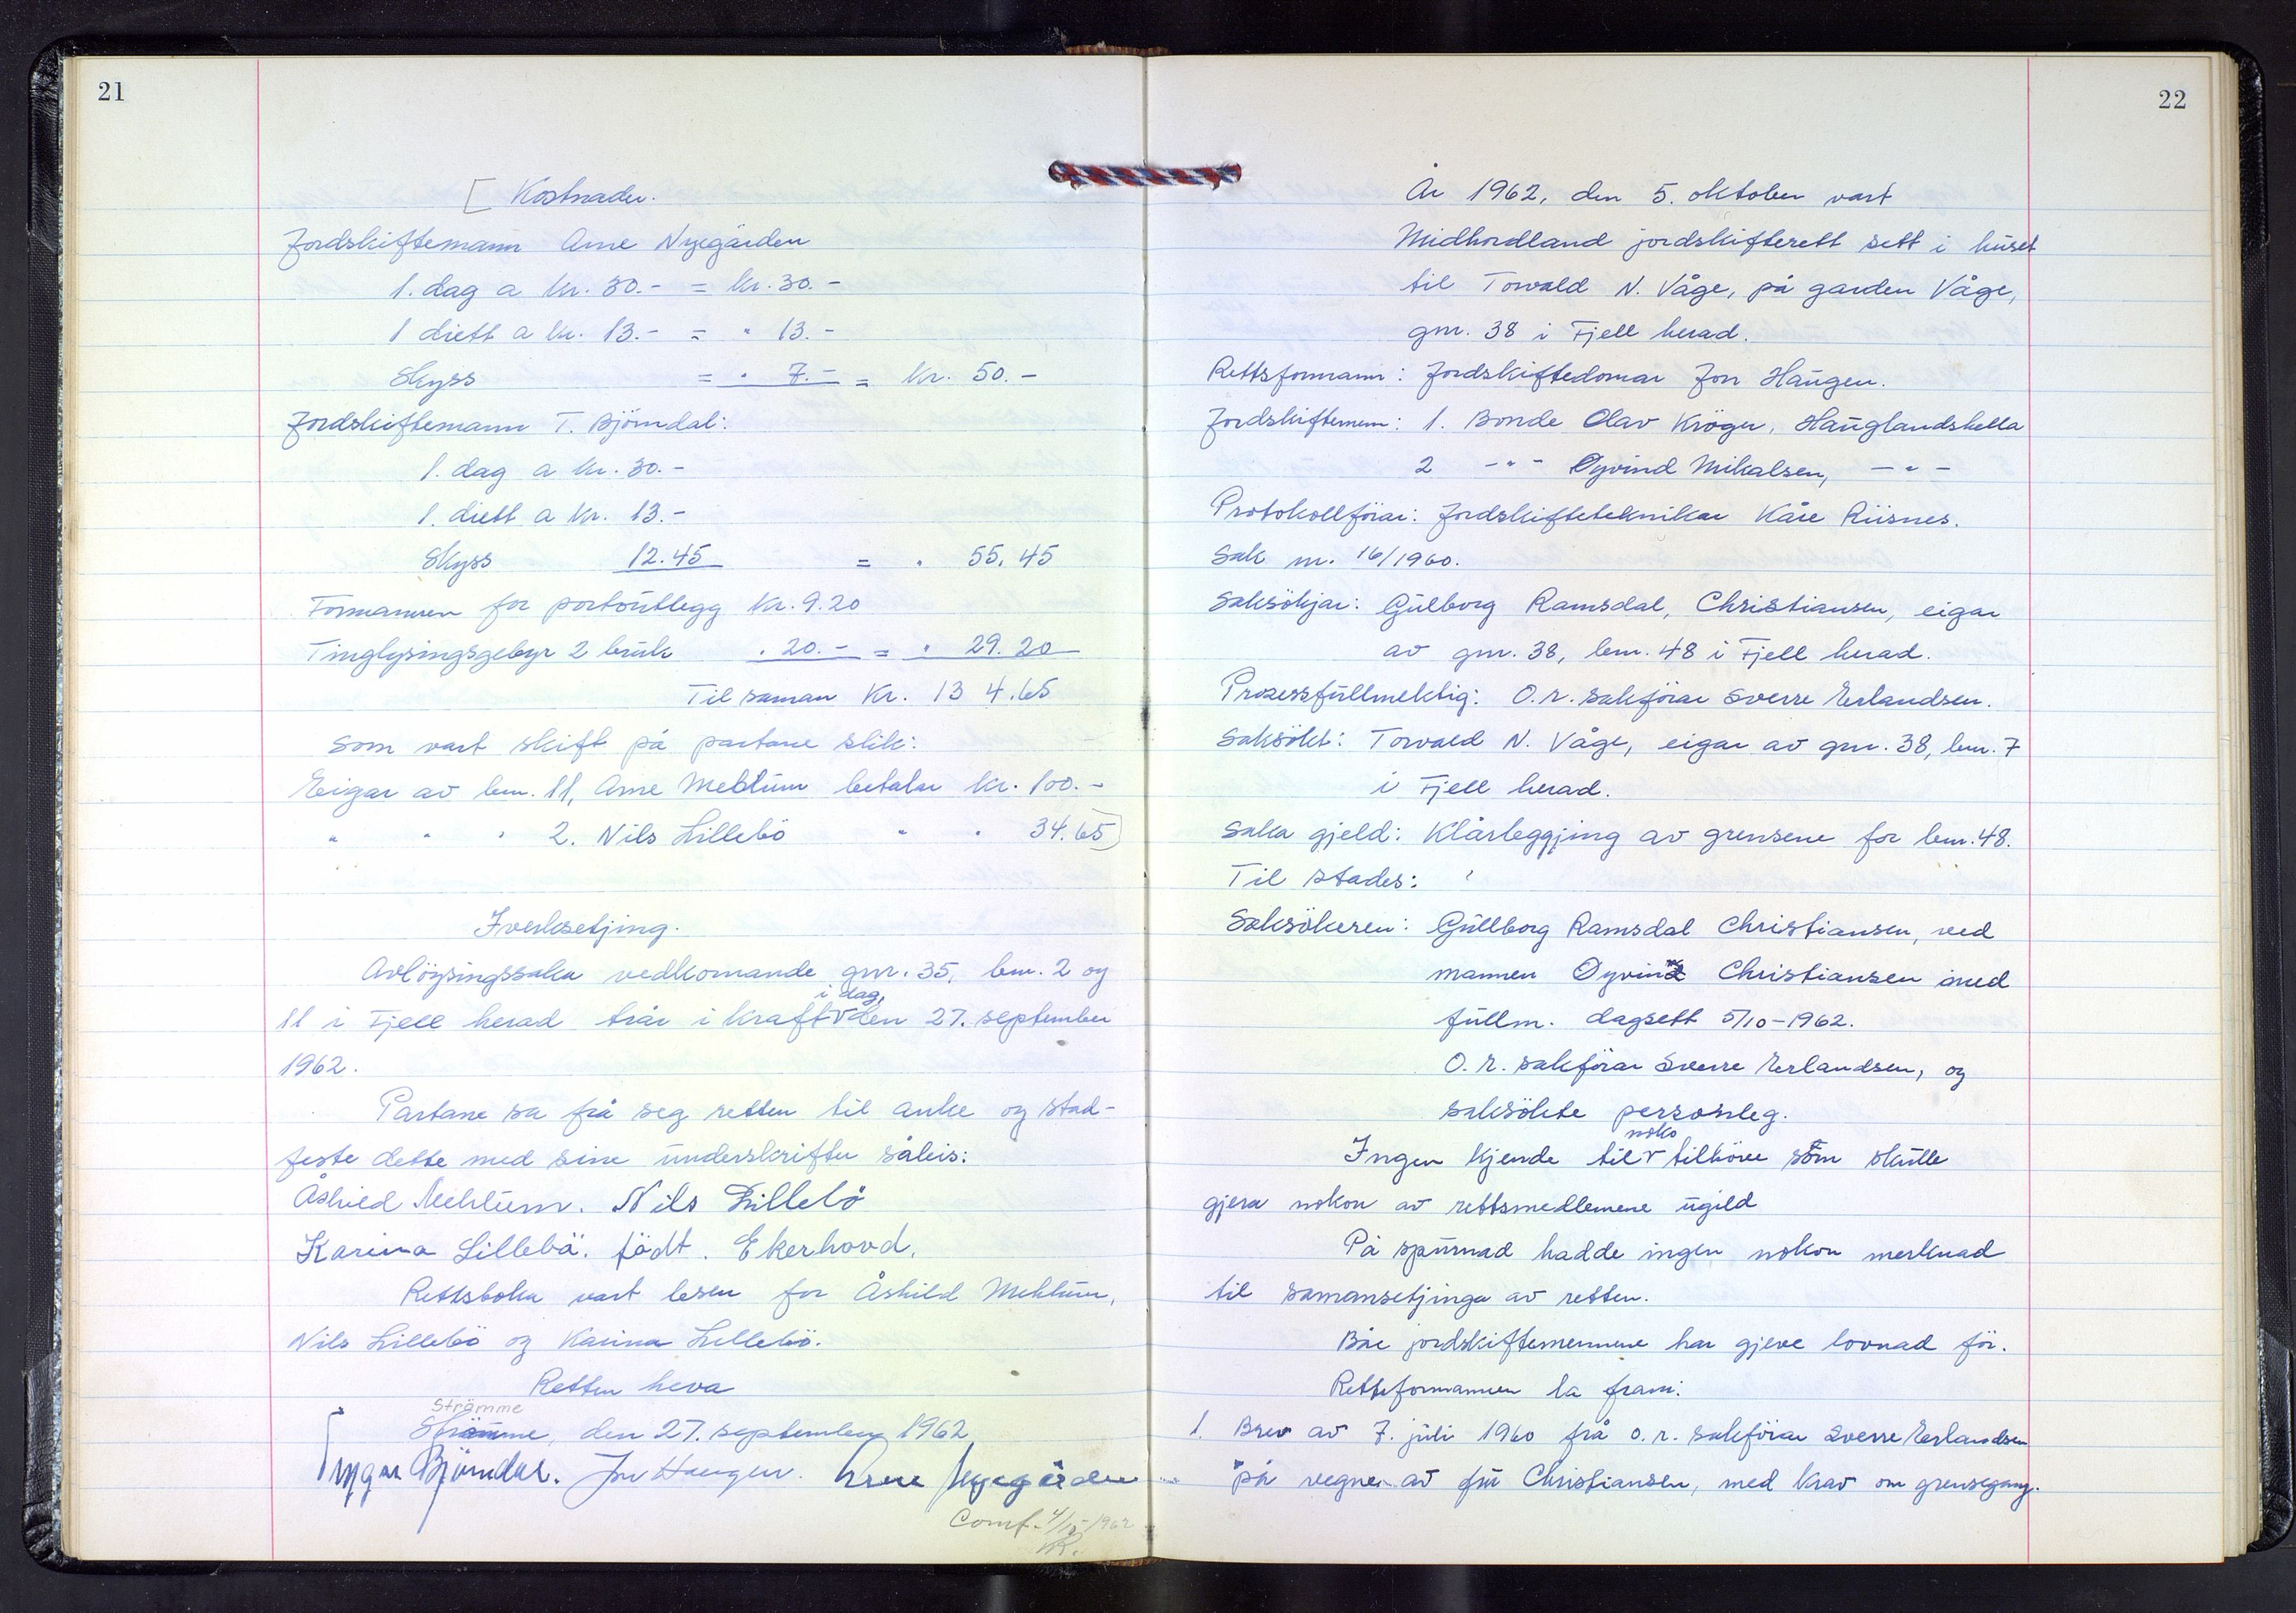 21
[ Kostnader.
Jordskiftemann Arne Nyegården
1. dag a kr. 30.- = kr. 30.-
1 diett a kr. 13.- = " 13.-
Skyss = " 7.- = kr. 50.-
Jordskiftemann T. Björndal:
1. dag a kr. 30.-
1. diett a kr. 13.-
Skyss 12.45 = " 55.45
Formannen for portoutlegg kr. 9.20
Tinglysingsgebyr 2 bruk " 20.- = " 29.20
Til saman kr. 134.65
som vart skift på partane slik:
Eigar av bnr. 11, Arne Mehlum betalar kr. 100.-
" " " 2. Nils Lillebö " " 34.65]
Iverksetjing.
Avlöysingssaka vedkomande gnr. 35, bnr. 2 og
i dag,
11 i Fjell herad trår i kraft v den 27. september
1962.
Partane sa frå seg retten til anke og stad-
feste dette med sine underskrifter såleis:
Åshild Mehlum. Nils Lillebö
Karina Lillebö. födt. Ekerhovd.
Rettsboka vart lesen for Åshild Mehlum,
Nils Lillebö og Karina Lillebö.
Retten heva
Strömme
Strömme, den 27. september 1962
Trygve Björndal. Jon Haugen. Arne Nyegården
Conf. 4/10-1962
KR.
22
År 1962, den 5. oktober vart
Midhordland jordskifterett sett i huset
til Torvald N. Våge, på garden Våge,
gnr. 38 i Fjell herad.
Rettsformann: Jordskiftedomar Jon Haugen.
Jordskiftemenn: 1. Bonde Olav Kröger, Hauglandshella
2 -"- Øyvind Mikalsen, -"-
Protokollförar: Jordskifteteknikar Kåre Riisnes.
Sak nr. 16/1960.
Saksökjar: Gulborg Ramsdal, Christiansen, eigar
av gnr. 38, bnr. 48 i Fjell herad.
Prosessfullmektig: O.r. sakförar Sverre Erlandsen.
Saksökt: Torvald N. Våge, eigar av gnr. 38, bnr. 7
i Fjell herad.
Saka gjeld: Klårleggjing av grensene for bnr. 48.
Til stades:
Saksökeren: Gullborg Ramsdal Christiansen, ved
mannen Øyvind Christiansen med
fullm. dagsett 5/10-1962.
O.r. sakförar Sverre Erlandsen, og
saksökte personleg.
noko
Ingen kjende til v tilhöve som skulle
gjera nokon av rettsmedlemene ugild
På spurnad hadde ingen nokon merknad
til samansetjinga av retten.
Båe jordskiftemennene har gjeve lovnad för.
Rettsformannen la fram:
1. Brev av 7. juli 1960 frå o.r. sakförar Sverre Erlandsen
på vegne av fru Christiansen, med krav om grensegang.